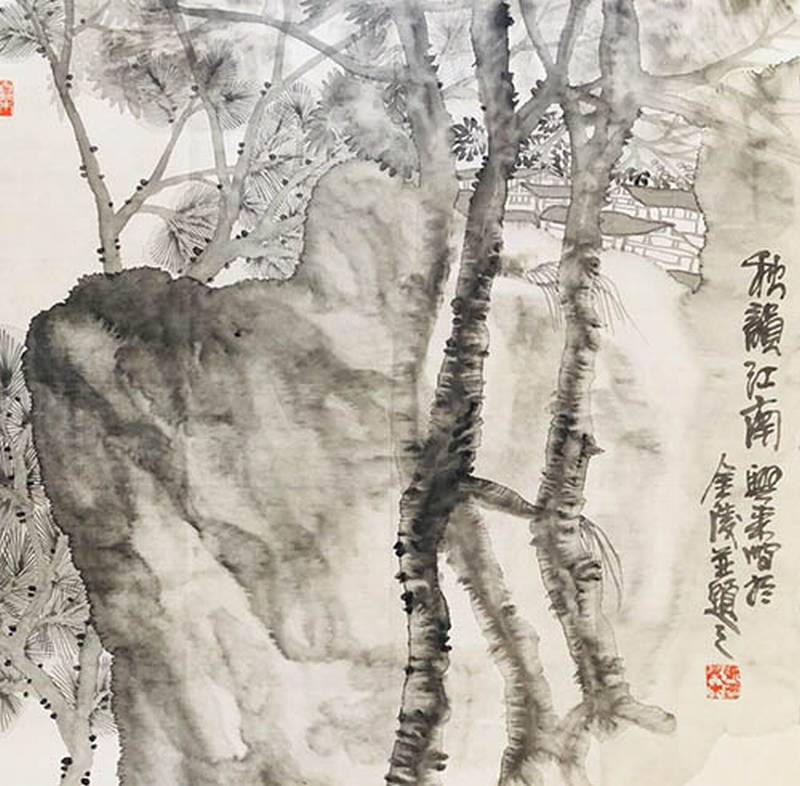 秋韻江南 興來寫於
金陵並題之